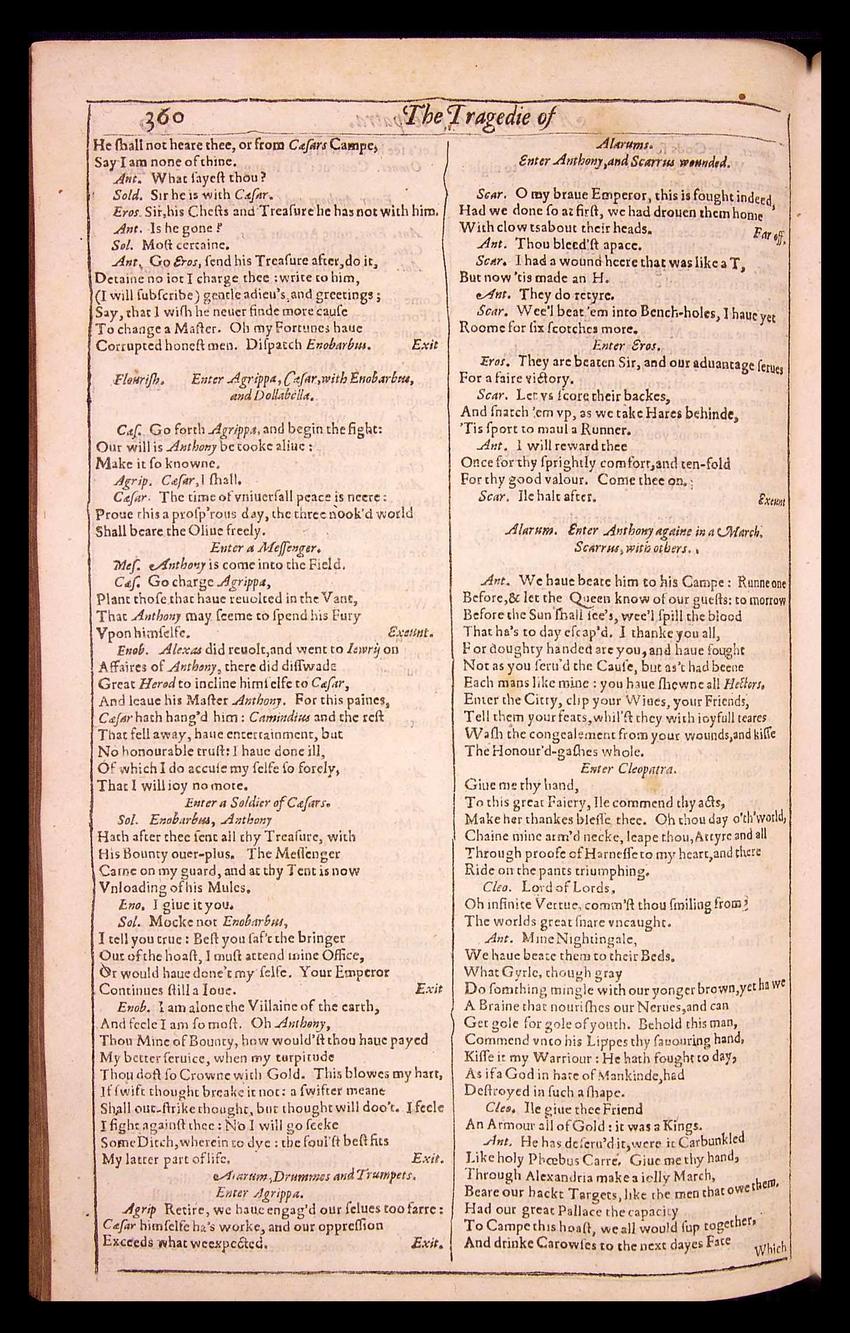 360
The Tragedie of
He ſhall not heare thee, or from Cæſars Campe,
Say I am none of thine.
Ant. What ſayeſt thou?
Sold. Sir he is with Cæſar.
Eros. Sir, his Cheſts and Treaſure he has not with him.
Ant. Is he gone?
Sol. Moſt certaine.
Ant, Go Eros, ſend his Treaſure after, do it,
Detaine no iot I charge thee : write to him,
(I will ſubſcribe) gentle adieu's, and greetings ;
Say, that I wiſh he neuer finde more cauſe
To change a Maſter. Oh my Fortunes haue
Corrupted honeſt men. Diſpatch Enobarbus. Exit
Flouriſh. Enter Agrippa, Cæſar, with Enobarbus,
and Dollabella.
Cæſ. Go forth Agrippa, and begin the fight:
Our will is Anthony be tooke aliue :
Make it ſo knowne.
Agrip. Cæſar, I ſhall.
Cæſar. The time of vniuerſall peace is neere :
Proue this a proſp'rous day, the three nook'd world
Shall beare the Oliue freely.
Enter a Meſſenger.
Meſ. Anthony is come into the Field.
Cæſ. Go charge Agrippa,
Plant thoſe that haue reuolted in the Vant,
That Anthony may ſeeme to ſpend his Fury
Vpon himſelfe. Exeunt.
Enob. Alexas did reuolt, and went to Iewrij on
Affaires of Anthony, there did diſſwade
Great Herod to incline himſelfe to Cæſar,
And leaue his Maſter Anthony. For this paines,
Cæſar hath hang'd him : Camindius and the reſt
That fell away, haue entertainment, but
No honourable truſt: I haue done ill,
Of which I do accuſe my ſelfe ſo ſorely,
That I will ioy no more.
Enter a Soldier of Cæſars.
Sol. Enobarbus, Anthony
Hath after thee ſent all thy Treaſure, with
His Bounty ouer-plus. The Meſſenger
Came on my guard, and at thy Tent is now
Vnloading of his Mules.
Eno. I giue it you.
Sol. Mocke not Enobarbus,
I tell you true : Beſt you ſaf't the bringer
Out of the hoaſt, I muſt attend mine Office,
Or would haue done't my ſelfe. Your Emperor
Continues ſtill a Ioue. Exit
Enob. I am alone the Villaine of the earth,
And feele I am ſo moſt. Oh Anthony,
Thou Mine of Bounty, how would'ſt thou haue payed
My better ſeruice, when my turpitude
Thou doſt ſo Crowne with Gold. This blowes my hart,
If ſwift thought breake it not : a ſwifter meane
Shall out-ſtrike thought, but thought will doo't. I feele
I fight againſt thee : No I will go ſeeke
Some Ditch, wherein to dye : the foul'ſt beſt fits
My latter part of life. Exit.
Alarum, Drummes and Trumpets.
Enter Agrippa.
Agrip Retire, we haue engag'd our ſelues too farre :
Cæſar himſelfe ha's worke, and our oppreſſion
Exceeds what we expected. Exit.
Alarums.
Enter Anthony, and Scarrus wounded.
Scar. O my braue Emperor, this is fought indeed,
Had we done ſo at firſt, we had drouen them home
With clowts about their heads. Far off.
Ant. Thou bleed'ſt apace.
Scar. I had a wound heere that was like a T,
But now 'tis made an H.
Ant. They do retyre.
Scar. Wee'l beat 'em into Bench-holes, I haue yet
Roome for ſix ſcotches more.
Enter Eros.
Eros. They are beaten Sir, and our aduantage ſerues
For a faire victory.
Scar. Let vs ſcore their backes,
And ſnatch 'em vp, as we take Hares behinde,
'Tis ſport to maul a Runner.
Ant. I will reward thee
Once for thy ſprightly comfort, and ten-fold
For thy good valour. Come thee on.
Scar. Ile halt after. Exeunt
Alarum. Enter Anthony againe in a March.
Scarrus, with others.
Ant. We haue beate him to his Campe : Runne one
Before, & let the Queen know of our gueſts: to morrow
Before the Sun ſhall ſee's, wee'l ſpill the blood
That ha's to day eſcap'd. I thanke you all,
For doughty handed are you, and haue fought
Not as you ſeru'd the Cauſe, but as't had beene
Each mans like mine : you haue ſhewne all Hectors.
Enter the Citty, clip your Wiues, your Friends,
Tell them your feats, whil'ſt they with ioyfull teares
Waſh the congealement from your wounds, and kiſſe
The Honour'd-gaſhes whole.
Enter Cleopatra.
Giue me thy hand,
To this great Faiery, Ile commend thy acts,
Make her thankes bleſſe thee. Oh thou day o'th'world,
Chaine mine arm'd necke, leape thou, Attyre and all
Through proofe of Harneſſe to my heart, and there
Ride on the pants triumphing.
Cleo. Lord of Lords,
Oh infinite Vertue, comm'ſt thou ſmiling from
The worlds great ſnare vncaught.
Ant. Mine Nightingale,
We haue beate them to their Beds.
What Gyrle, though gray
Do ſomthing mingle with our yonger brown, yet ha we
A Braine that nouriſhes our Nerues, and can
Get gole for gole of youth. Behold this man,
Commend vnto his Lippes thy ſauouring hand,
Kiſſe it my Warriour : He hath fought to day,
As if a God in hate of Mankinde, had
Deſtroyed in ſuch a ſhape.
Cleo. Ile giue thee Friend
An Armour all of Gold : it was a Kings.
Ant. He has deſeru'd it, were it Carbunkled
Like holy Phœbus Carre. Giue me thy hand,
Through Alexandria make a iolly March,
Beare our hackt Targets, like the men that owe them.
Had our great Pallace the capacity
To Campe this hoaſt, we all would ſup together,
And drinke Carowſes to the next dayes Fate
Which